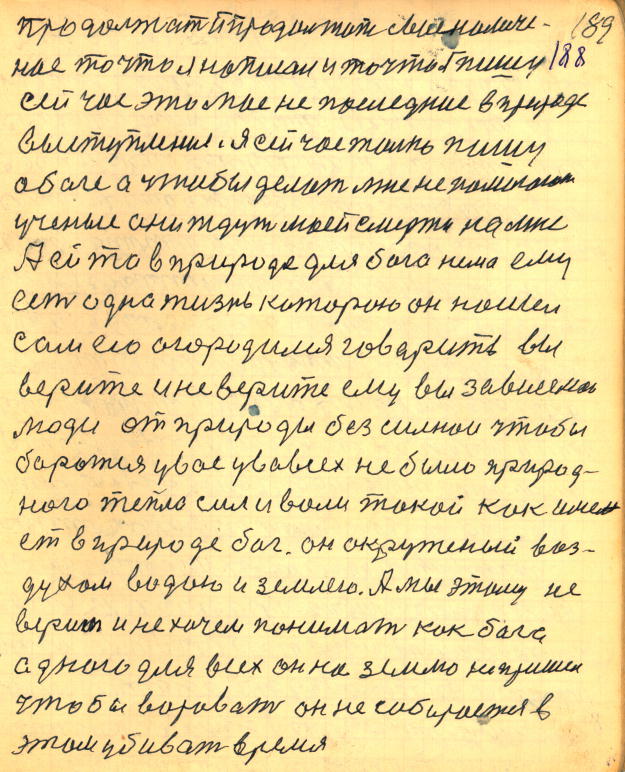 продолжат и продолжат мы намече- 189
ное то что я написал и то что я пишу 188
сейчас это мое не последние в природе
выступление. я сейчас толко пишу
о боге а чтобы делат мне не помогают
ученые они ждут моей смерти на мне
А сё то в природе для бога нема ему
ест одна жизнь которою он нашел
сам его огородился говарить вы
верите и не верите ему вы зависемы
люди от природы без силнои чтобы
боротися у вас у вавсех не было природ-
ного тепла сил и воли такой как имеет
ет в природе бог. он окруженый воз-
духом водою и землею. А мы этому не
верим и не хочем понимат как бога
адного для всех он на землю пришел
чтобы вороват он не собирается в
этом убиват время